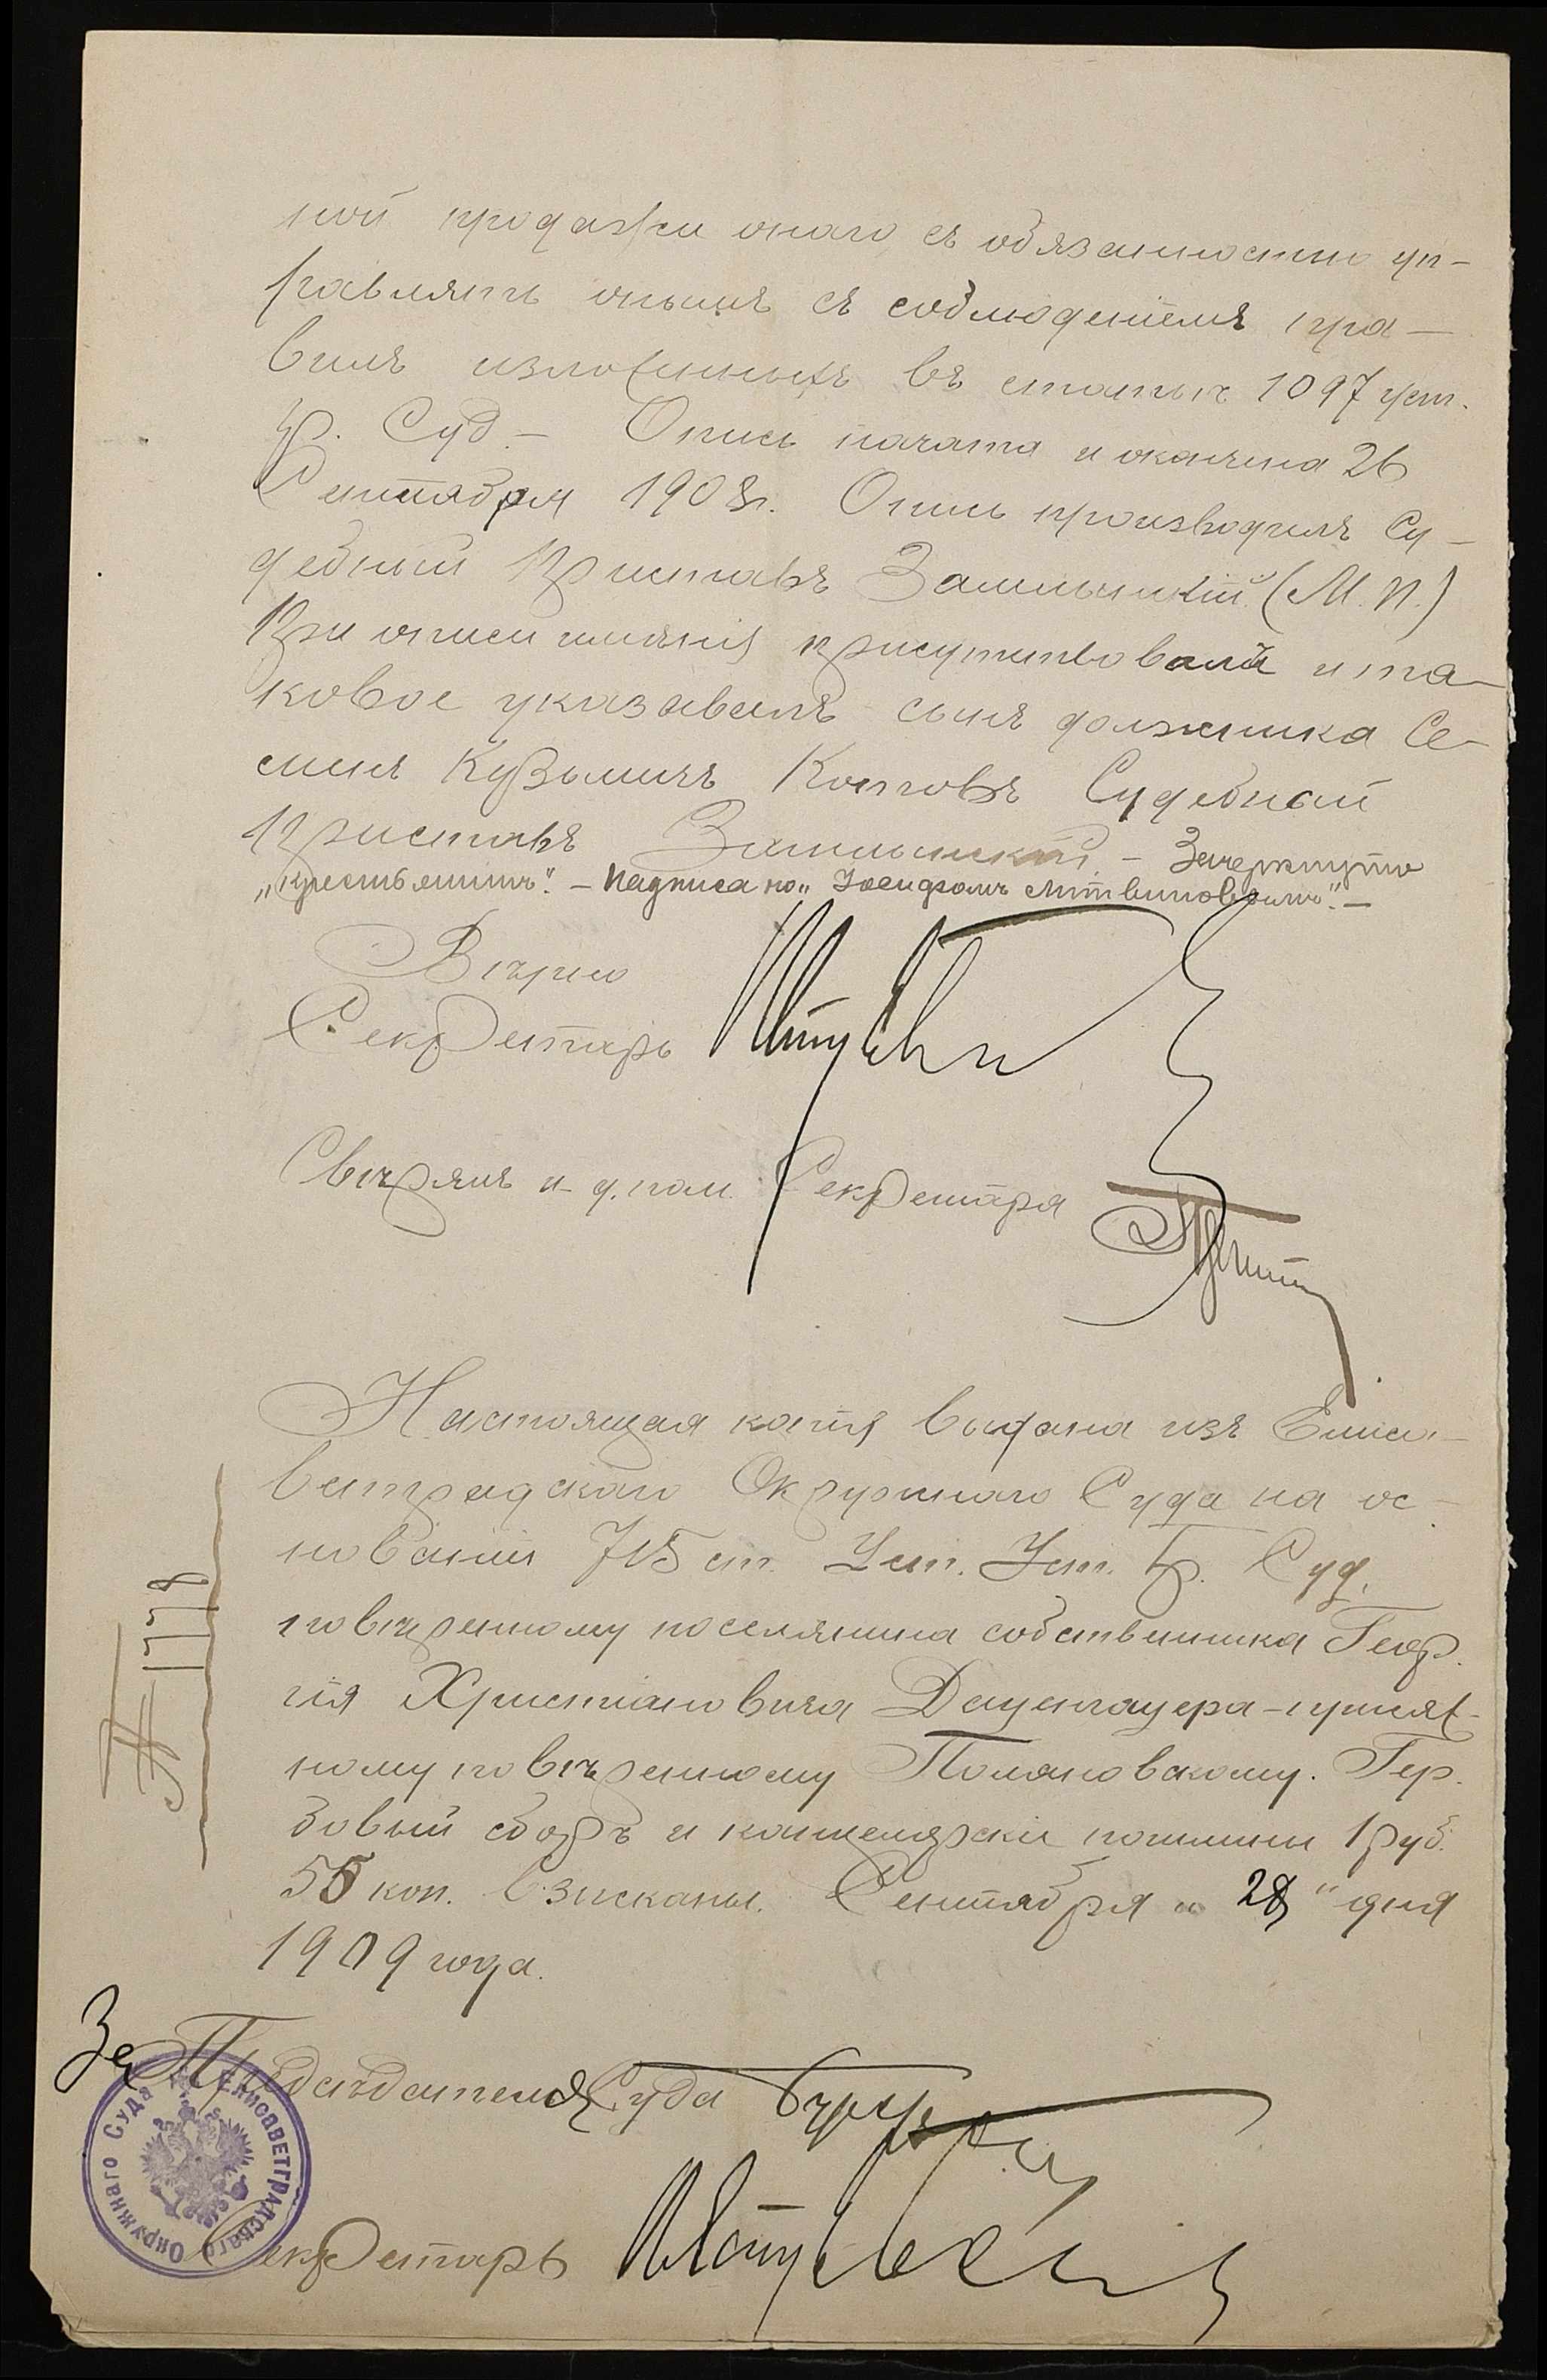 ной продажи онаго съ обязанностью уп-
равлять онымъ съ соблюденіемъ пра-
вилъ изложенныхъ въ статьѣ 1097 уст.
Гр. Суд. - Опись начата и окончена 26
Сентября 1908 г. Опись производилъ Су-
дебный Приставъ (М. П.)
При описи имѣнія присутствовалъ и та-
ковое указывалъ сынъ должника Се-
менъ Кузьмичъ Котовъ Судебный
Приставъ - Зачеркнуто
„крестьянинъ". - Надписано „Іосифомъ Литвиновымъ". -
Вѣрно
Секретарь
Свѣрялъ и. д. пом. Секретаря
Настоящая копія выдана изъ Елиса-
ветградскаго Окружнаго Суда на ос-
нованіи 715 ст. Уст. Гр. Суд.
повѣренному поселянина собственника Геор-
гія Христіановича Дауенгауера - присяж-
ному повѣренному Поляновскому. Гер-
бовый сборъ и канцелярскія пошлины 1 руб.
55 коп. взысканы. Сентября „28" дня
1909 года.
№ 1778
За Предсѣдателя Суда
Секретарь
Елисаветградскаго Окружнаго Суда